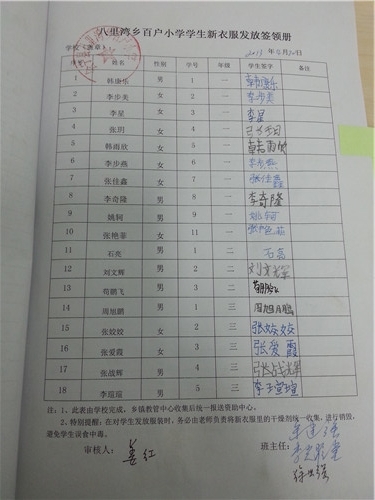 八里湾乡百户小学学生新衣服发放签领册
学校（盖章）：
序号 姓名 性别 学号 年级 学生签字 备注
1 韩康华 男 1 一
2 李步美 女 2 一 李步美
3 李星 男 3 一 李星
4 张玥 女 4 一
5 韩雨欣 女 5 一 韩雨欣
6 李步燕 女 6 一 李步燕
7 张佳鑫 女 7 一 张佳鑫
8 李奇隆 男 8 一 李奇隆
9 姚轲 男 9 一 姚轲
10 张艳菲 女 11 一 张艳菲
11 石亮 男 1 二 石亮
12 刘文辉 男 2 二 刘文辉
13 苟鹏飞 男 3 二 苟鹏飞
14 周旭鹏 男 1 三 周旭鹏
15 张姣姣 女 2 三 张姣姣
16 张爱霞 女 3 三 张爱霞
17 张战辉 男 4 三 张战辉
18 李瑄瑄 男 5 三
注：1，此表由学校完成，乡镇教管中心收集后统一报送资助中心。
2，特别提醒：在对学生发放服装时，务必由老师负责将新衣服里的干燥剂统一收集，进行销毁，
避免学生误食中毒。
审核人： 姜红 班主任：